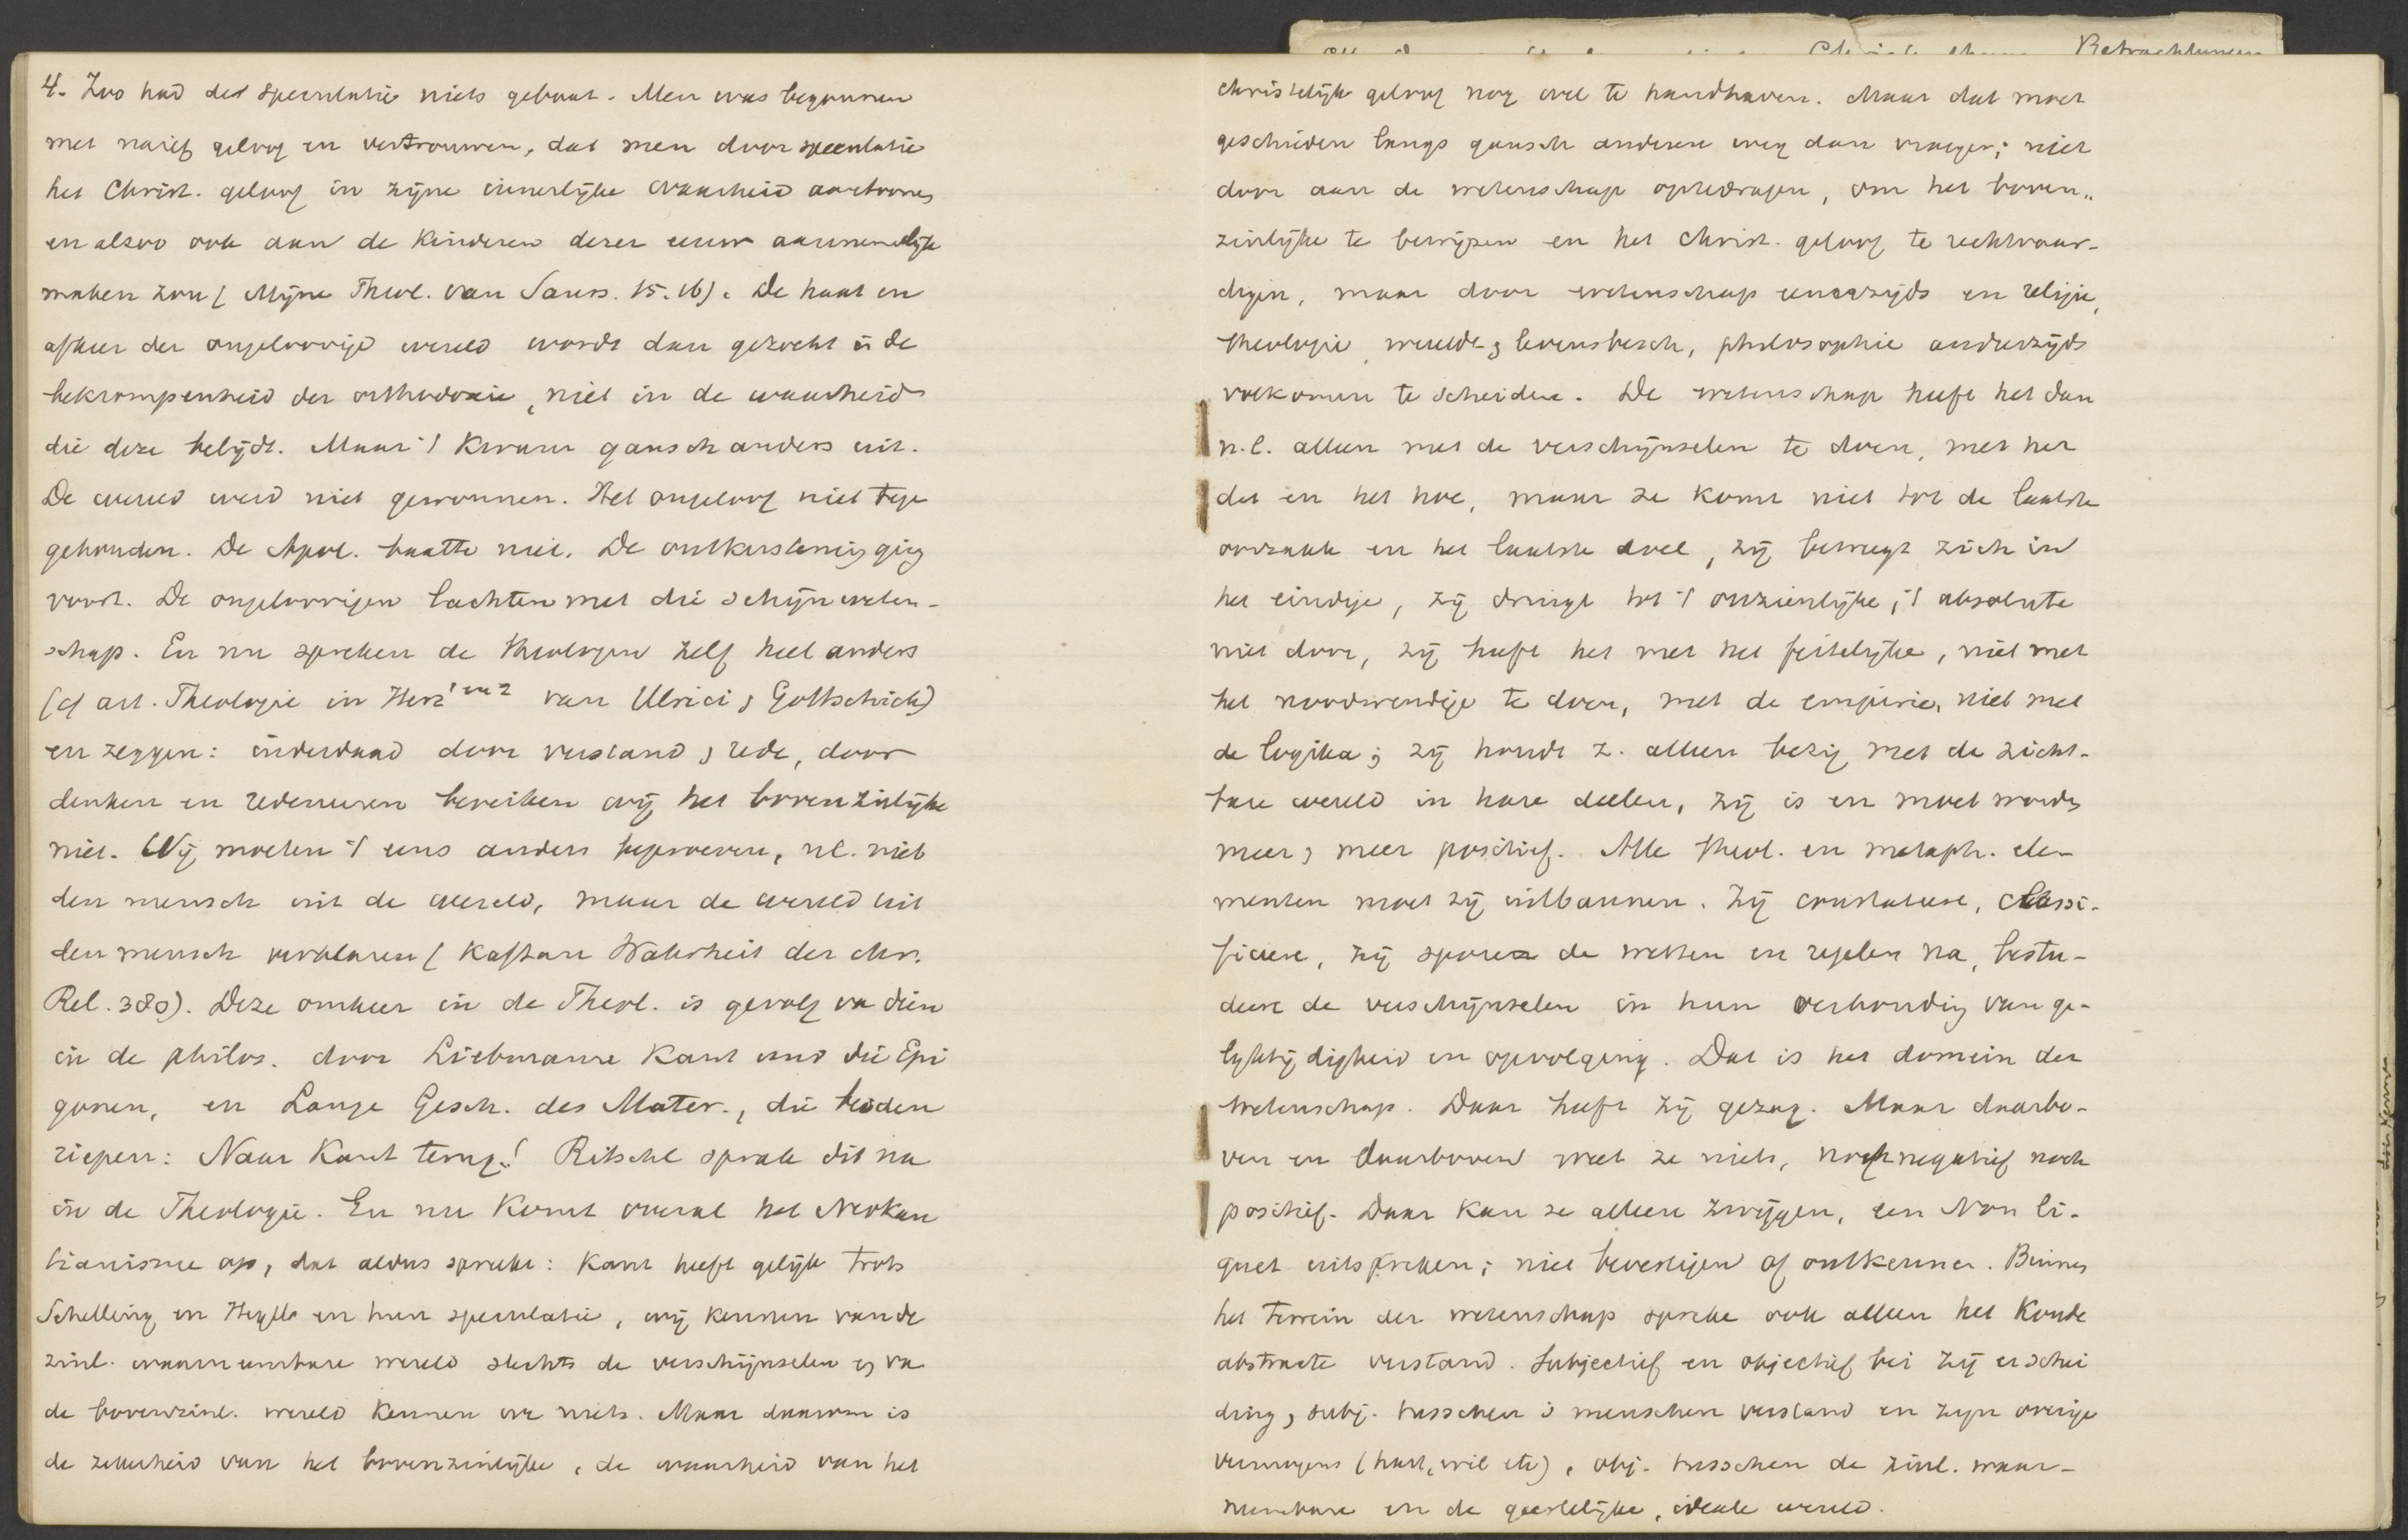 4. Zoo had de speculatie niets gebaat. Men was begonnen
met naief geloof en vertrouwen, dat men door speculatie
het Christ. geloof in zijne innerlijke waarheid aantoonen
en alzoo ook aan de kinderen dezer eeuw aannemelijk
maken zou (Mijne Theol. van Sauss. 15.16). De haat en
afkeer der ongeloovige wereld wordt dan gezocht in de
bekrompenheid der orthodoxie, niet in de waarheid
die deze belijdt. Maar 't kwam gansch anders uit.
De wereld werd niet gewonnen. Het ongeloof niet tege
gehouden. De Apol. baatte niet. De ontkerstening ging
voort. De ongeloovigen lachten met die schijnweten-
schap. En nu spreken de theologen zelf heel anders
(cf art. Theologie in Herz 1 en 2 van Ulrici & Gottschick)
en zeggen: inderdaad door verstand & rede, door
denken en redeneeren bereiken wij het bovenzinlijke
niet. Wij moeten 't eens anders beproeven, nl. niet
den mensch uit de wereld, maar de wereld uit
den mensch verklaren (Kaftan Wahrheit der chr.
Rel. 380). Deze omkeer in de Theol. is gevolg va dien
in de philos. door Liebmann Kant und die Epi
gonen, en Lange Gesch. des Mater., die beiden
riepen: Naar Kant terug! Ritschl sprak dit na
in de Theologie. En nu komt overal het Neokan
tianisme op, dat aldus spreekt: Kant heeft gelijk trots
Schelling en Hegel en hun speculatie, wij kennen van de
zinl. waarneembare wereld slechts de verschijnselen en va
de bovenzinl. wereld kennen we niets. Maar daarom is
de zekerheid van het bovenzinlijke, de waarheid van het
christelijk geloof nog wel te handhaven. Maar dat moet
geschieden langs gansch anderen weg dan vroeger; niet
door aan de wetenschap optedragen, om het boven„
zinlijke te bewijzen en het Christ. geloof te rechtvaar-
digen, maar door wetenschap eenerzijds en religie,
theologie, wereld- & levensbesch, philosophie anderzijds
volkomen te scheiden. De wetenschap heeft het dan
n.l. alleen met de verschijnselen te doen, met het
dat en het hoe, maar ze komt niet tot de laatste
oorzaak en het laatste doel, zij beweegt zich in
het eindige, zij dringt tot 't onzienlijke, 't absolute
niet door, zij heeft het met het feitelijke, niet met
het noodwendige te doen, met de empirie, niet met
de logika; zij houdt z. alleen bezig met de zicht-
bare wereld in hare deelen, zij is en moet worden
meer & meer positief. Alle theol. en metaph. ele-
menten moet zij uitbannen. Zij constateere, classi-
ficeere, zij spore de wetten en regelen na, bestu-
deere de verschijnselen in hun verhouding van ge-
lijktijdigheid en opvolging. Dat is het domein der
wetenschap. Daar heeft zij gezag. Maar daarbo-
ven en daarboven weet ze niets, noch negatief noch
positief. Daar kan ze alleen zwijgen, een Non li-
quet uitspreken; niet bevestigen of ontkennen. Binnen
het terrein der wetenschap spreke ook alleen het koude
abstracte verstand. Subjectief en objectief bei zij er schei
ding, subj. tusschen 's menschen verstand en zijn overige
vermogens (hart, wil etc), obj. tusschen de zinl. waar-
neembare en de geestelijke, ideale wereld.